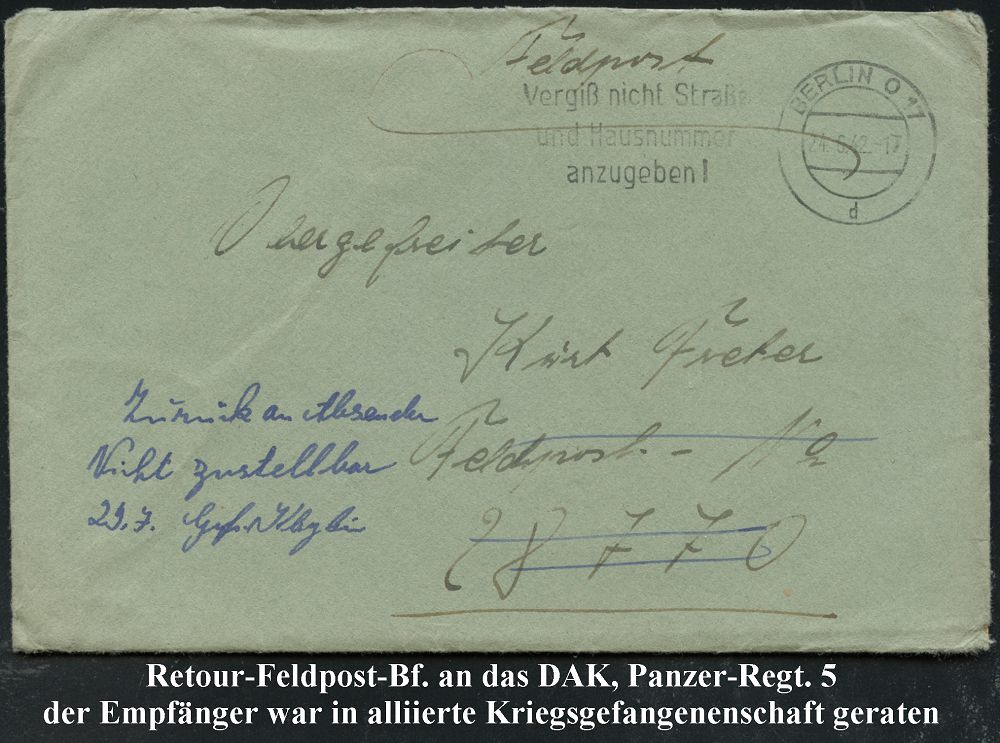 Feldpost
Vergiß nicht Straße
und Hausnummer
anzugeben!
BERLIN O 17
24.6.42.-17
d
Obergefreiter
Kurt Freter
Zurück an Absender
Feldpost - No
Nicht zustellbar
28770
29.7. Gefr.
Retour-Feldpost-Bf. an das DAK, Panzer-Regt. 5
der Empfänger war in alliierte Kriegsgefangenenschaft geraten